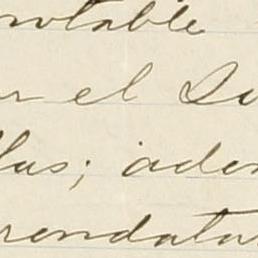 notable
r el Su
llas; ader
rendatar